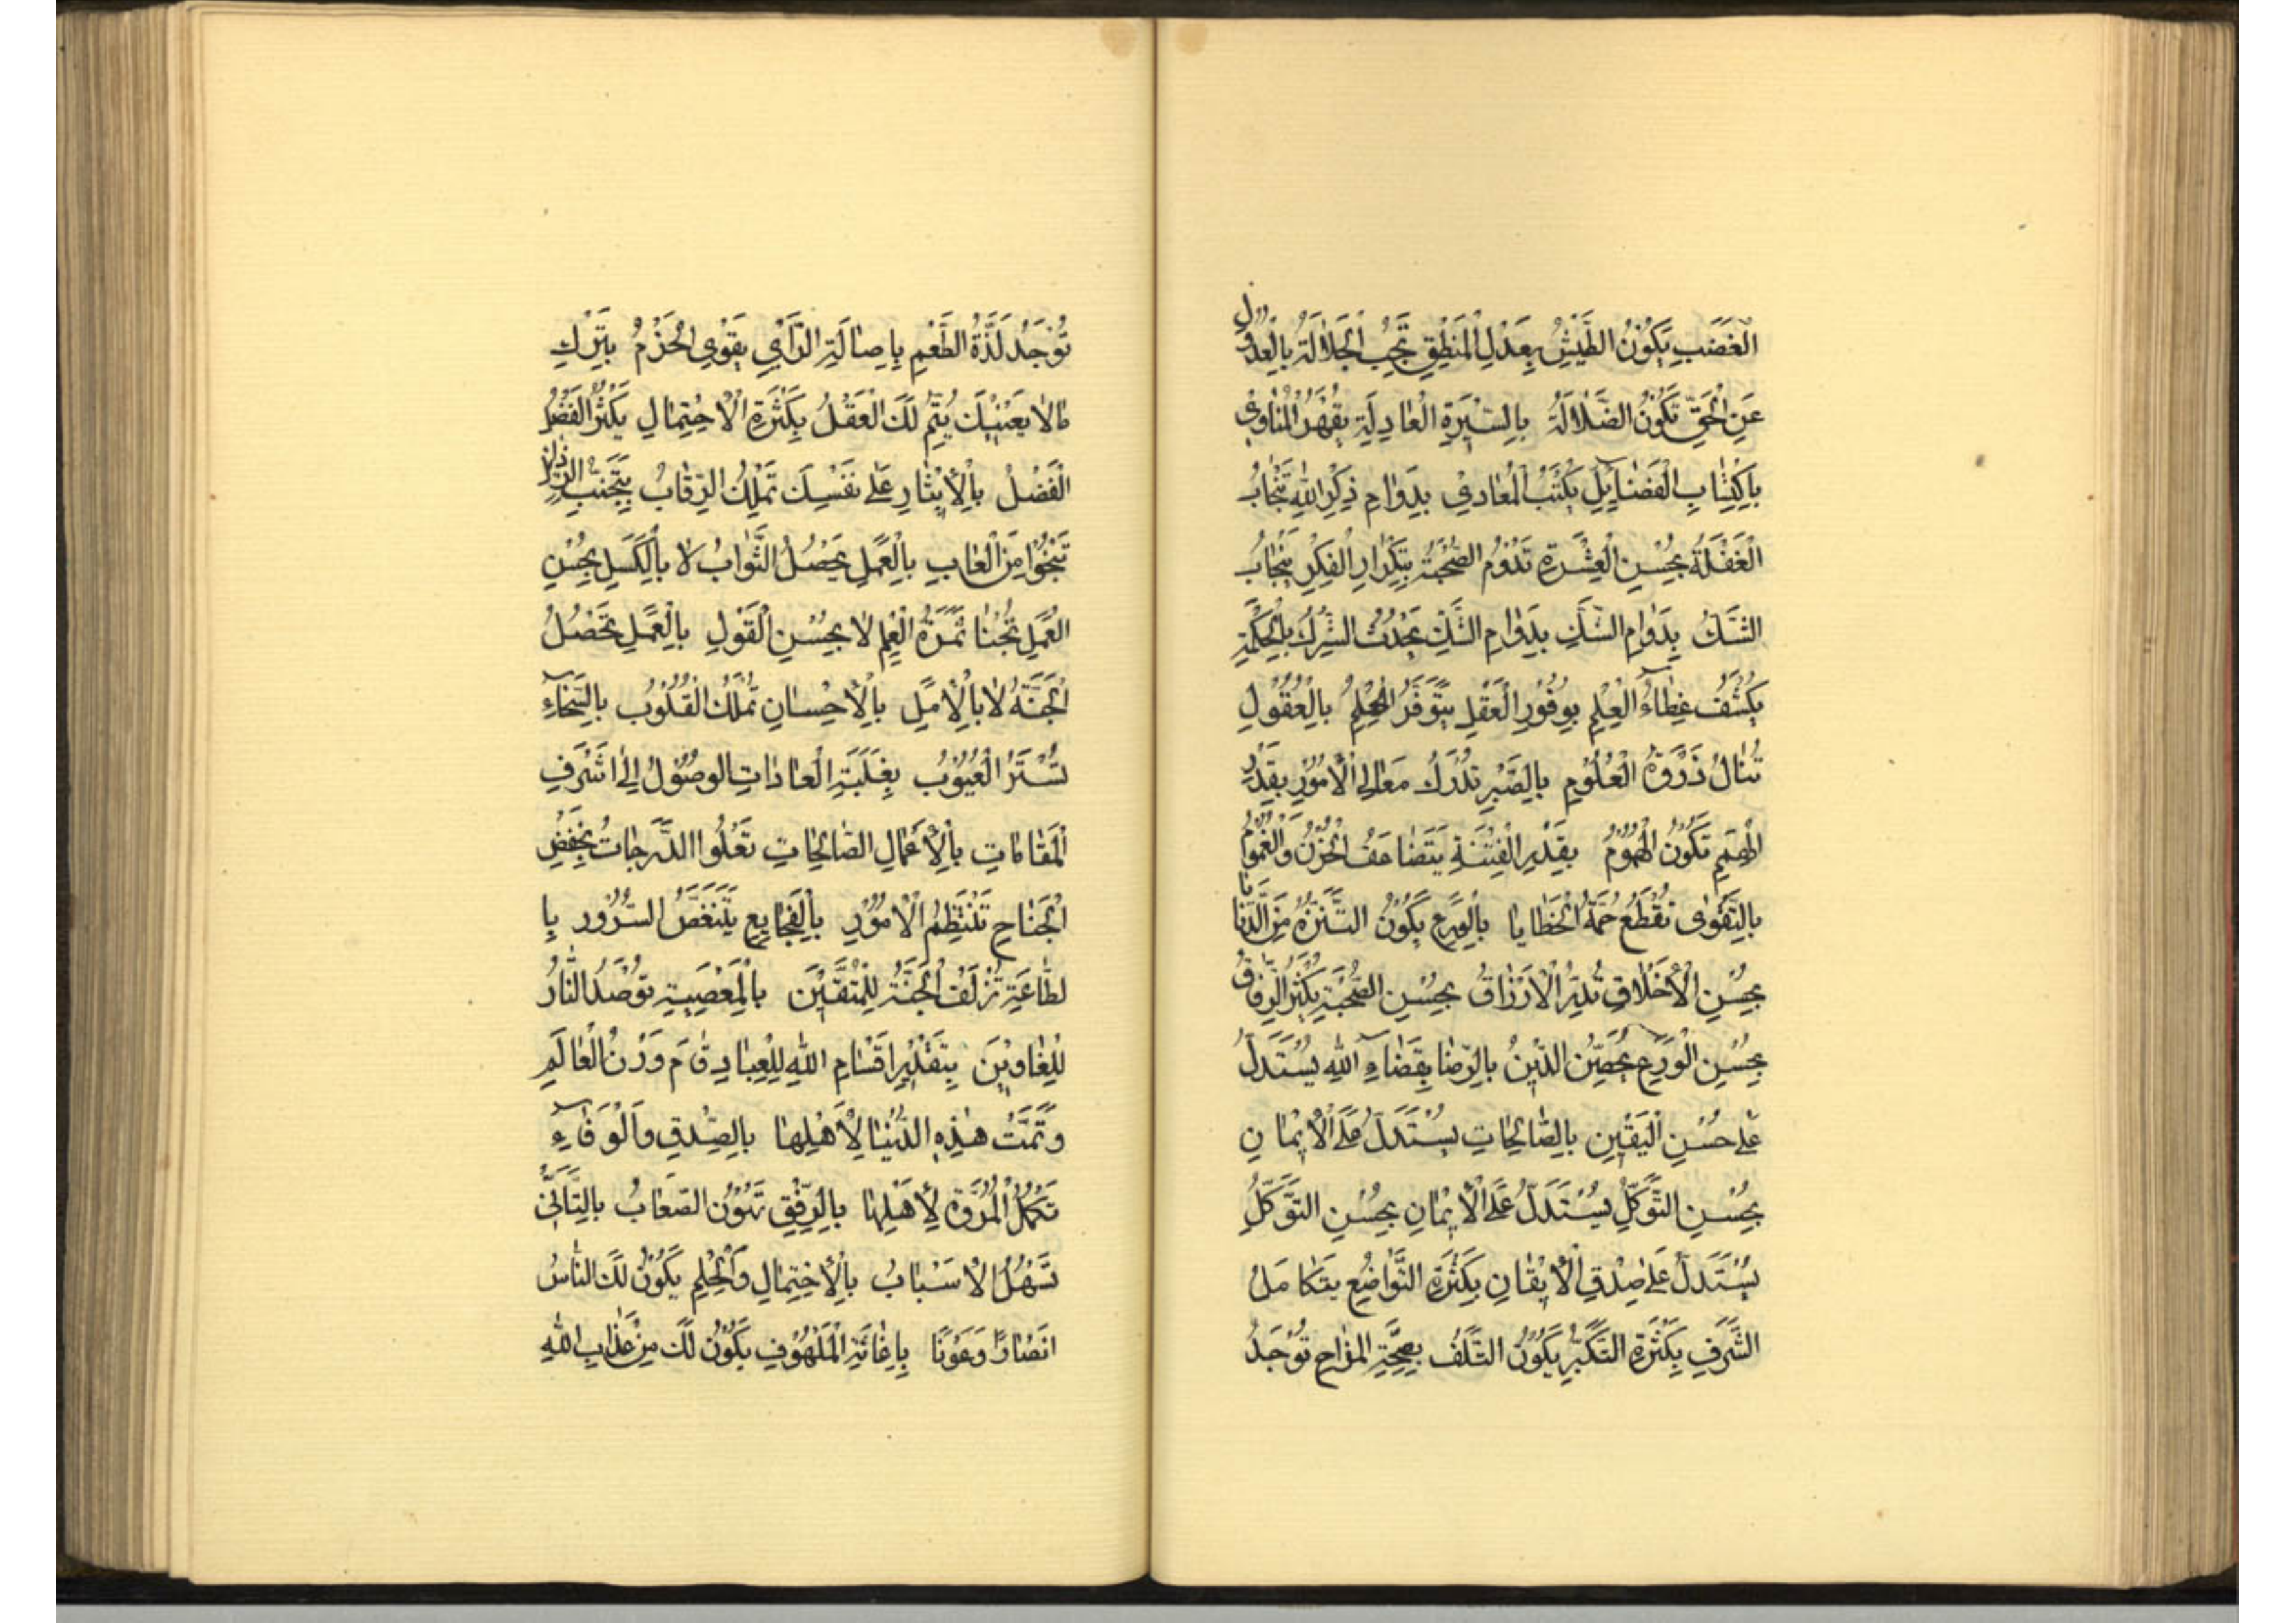 الْغَضَبِ يَكُوْنُ الطَّيْشُ بِعَدْلِ الْمَنْطِقِ تَجِبُ الْجَلَالَةُ بِالْعُدُوْلِ
عَنِ الْحَقِّ تَكُوْنُ الضَّلَالَةُ بِالسِّيْرَةِ الْعَادِلَةِ يُقْهَرُ الْمُنَاوِيْ
بِاكْتِسَابِ الْفَضَائِلِ يُكْبَتُ الْمُعَادِيْ بِدَوَامِ ذِكْرِ اللهِ تَنْجَابُ
الْغَفْلَةُ بِحُسْنِ الْعِشْرَةِ تَدُوْمُ الصُّحْبَةُ بِتَكْرَارِ الْفِكْرِ يَنْجَابُ
الشَّكُ بِدَوَامِ الشَّكِ بِدَوَامِ الشَّكِ يَحْدُثُ الشِّرْكُ بِالْحِكْمَةِ
يُكْشَفُ غِطَاءُ الْعِلْمِ بِوُفُوْرِ الْعَقْلِ يَتَوَفَّرُ الْحِلْمُ بِالْعُقُوْلِ
تُنَالُ ذَرْوَةُ الْعُلُوْمِ بِالصَّبْرِ تُدْرَكُ مَعَالِي الْاُمُوْرِ بِقَدْرِ
الْهِمَمِ تَكُوْنُ الْهُمُوْمُ بِقَدْرِ الْفِتْنَةِ يَتَضَاعَفُ الْحُزْنُ وَالْغُمُوْمُ
بِالتَّقْوٰى تُقْطَعُ حُمَةُ الْخَطَايَا بِالْوَرَعِ يَكُوْنُ التَّنَزُّهُ مِنَ الدَّنَايَا
بِحُسْنِ الْأَخْلَاقِ تُدِرُّ الْاَرْزَاقُ بِحُسْنِ الصُّحْبَةِ يَكْثُرُ الرِّفَاقُ
بِحُسْنِ الْوَرَعِ يُحَصِّنُ الدِّيْنُ بِالرِّضَا بِقَضَاءِ اللهِ يُسْتَدَلُّ
عَلٰى حُسْنِ الْيَقِيْنِ بِالصَّالِحَاتِ يُسْتَدَلُّ عَلَى الْاِيْمَانِ
بِحُسْنِ التَّوَكُّلِ يُسْتَدَلُّ عَلَى الْاِيْمَانِ بِحُسْنِ التَّوَكُّلِ
يُسْتَدَلُّ عَلٰى صِدْقِ الْاِيْقَانِ بِكَثْرَةِ التَّوَاضُعِ يَتَكَامَلُ
الشَّرَفِ بِكَثْرَةِ التَّكَبُّرِ يَكُوْنُ التَّلَفُ بِصِحَّةِ المزاج تُوْجَدُ
تُوْجَدُ لَذَّةُ الطَّعْمِ بِاِصَالَةِ الرَّأْيِ يَقْوِي الْحَزْمُ بِتَرْكِ
مَالَا يَعْنِيْكَ يُتِمُّ لَكَ الْعَقْلُ بِكَثْرَةِ الْاِحْتِمَالِ يَكْثُرُ الْفَضْلُ
الْفَضْلُ بِالْاِيْثَارِ عَلٰى نَفْسِكَ تَمْلِكُ الرِّقَابُ بِتَجَنُّبِ الرَّذَائِلِ
تَنْجُوْا مِنَ الْعَابِ بِالْعَمَلِ يَحْصُلُ الثَّوَابُ لَا بِالْكَسَلِ بِحُسْنِ
الْعَمَلِ تُجْنَا ثَمَرَةُ الْعِلْمِ لَا بِحُسْنِ الْقَوْلِ بِالْعَمَلِ تَحْصُلُ
الْجَنَّةُ لَا بِالْاَمَلِ بِالْاِحْسَانِ تُمْلَكُ الْقُلُوْبُ بِالسَّخَاءِ
تُسْتَرُ الْعُيُوْبُ بِغَلَبَةِ الْعَادَاتِ الوصُوْلُ اِلٰى اَشْرَفِ
الْمَقَامَاتِ بِالْأَعْمَالِ الصَّالِحَاتِ تَعْلُوا الدَّرَجَاتُ بِخَفْضِ
الْجَنَاحِ تَنْتَظِمُ الْاُمُوْرِ بِالْفَجَايِعِ يَتَنَغَّصُ السُّرُوْر بِا
لطَّاعَةِ تُزْلَفُ الْجَنَّةُ لِلْمُتَّقِيْنَ بِالْمَعْصِيَةِ تُوْصَدُ النَّارُ
لِلْغَاوِيْنَ بِتَقْدِيْرِ اَقْسَامِ اللهِ لِلْعِبَادِ قَامَ وَزْنُ الْعَالَمِ
وَتَمَّتْ هٰذِهِ الدُّنْيَا لِأَهْلِهَا بِالصِّدْقِ وَالْوَفَاءِ
تَكْمُلُ الْمُرُوَّةُ لِأَهْلِهَا بِالرِّفْقِ تَهُوْنُ الصّعَابُ بِالتَّأَنِّيْ
تَسْهُلُ الْاَسْبَابُ بِالْاِحْتِمَالِ وَالْحِلْمِ يَكُوْنُ لَكَ النَّاسُ
اَنْصَارًا وَعَوْنًا بِاِغَاثَةِ الْمَلْهُوْفِ يَكُوْنُ لَكَ مِنْ عَذَابِ اللهِ